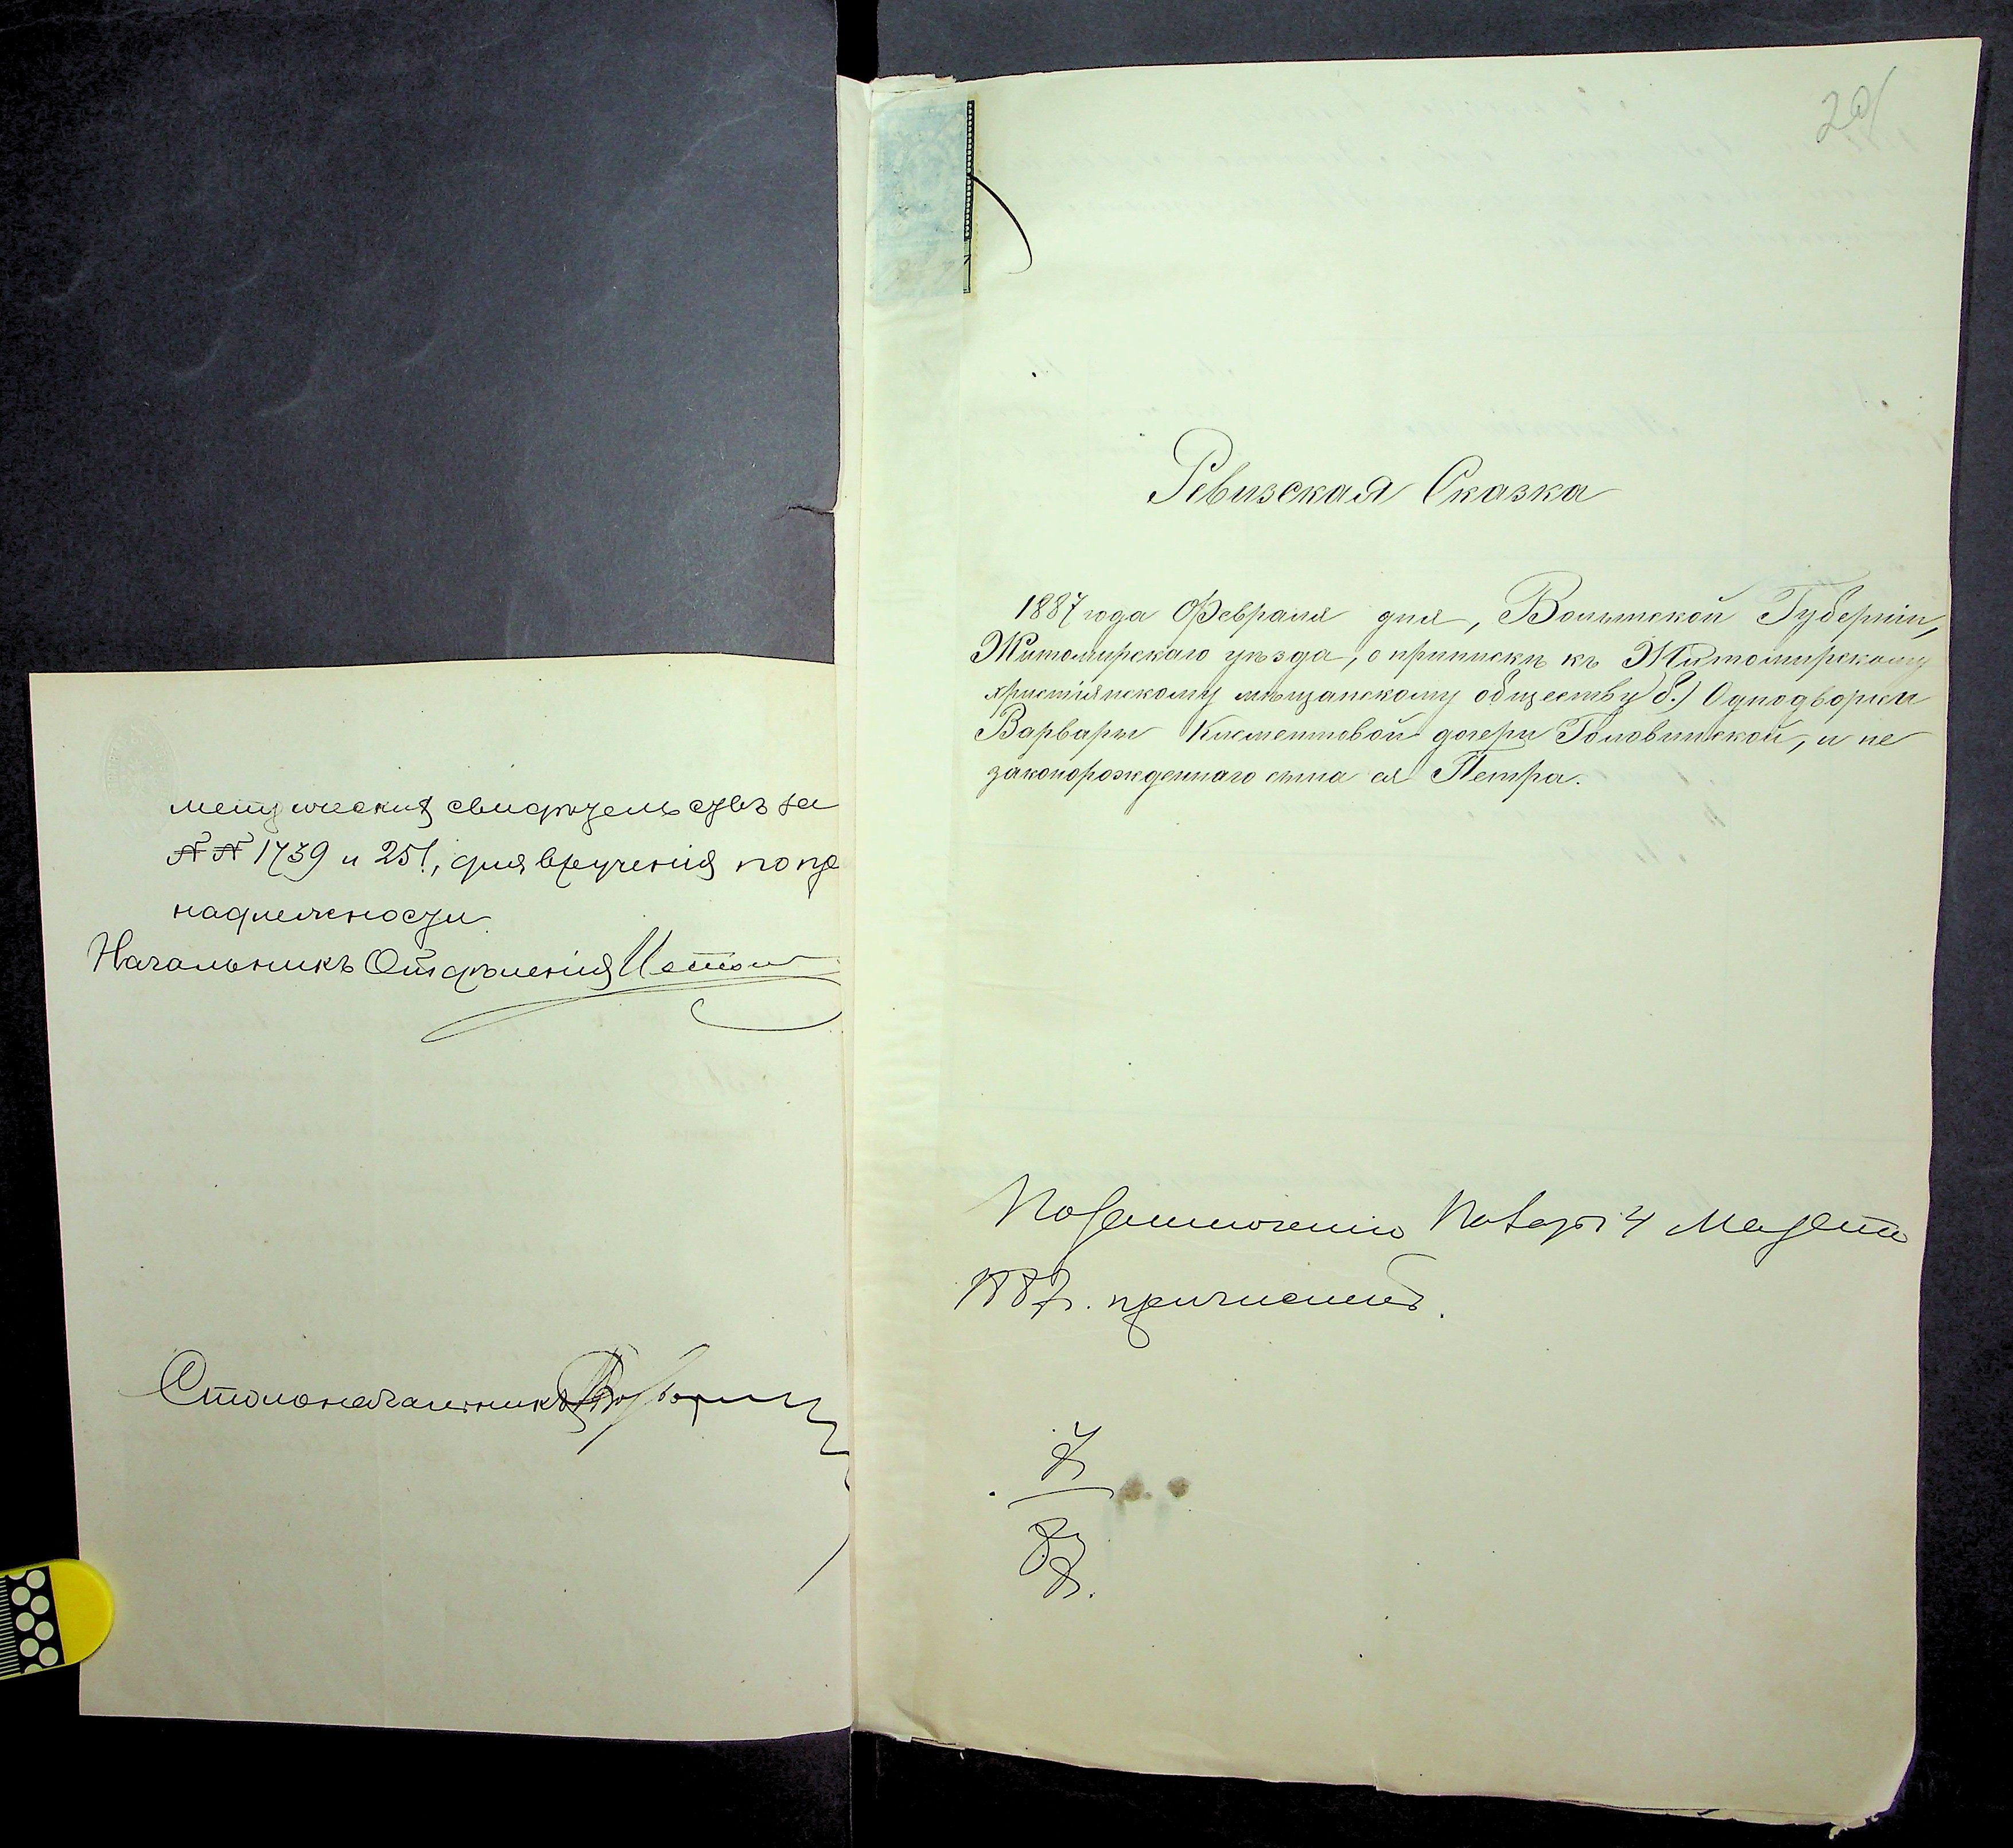 метрическихъ свидѣтельствъ за
№№ 1739 и 251, для врученія по при
надлежности.
Начальникъ Отдѣленія
Столоначальникъ
20
Ревизская Сказка
1887 года Февраля дня, Волынской Губерніи,
Житомирскаго уѣзда, о припискѣ къ Житомирскому
христіянскому мѣщанскому обществу б.) Однодворки
Варвары Климентовой дочери Головинской, и не
законорожденнаго сына ея Петра.
По 4
1887г. причислены.
7
87.